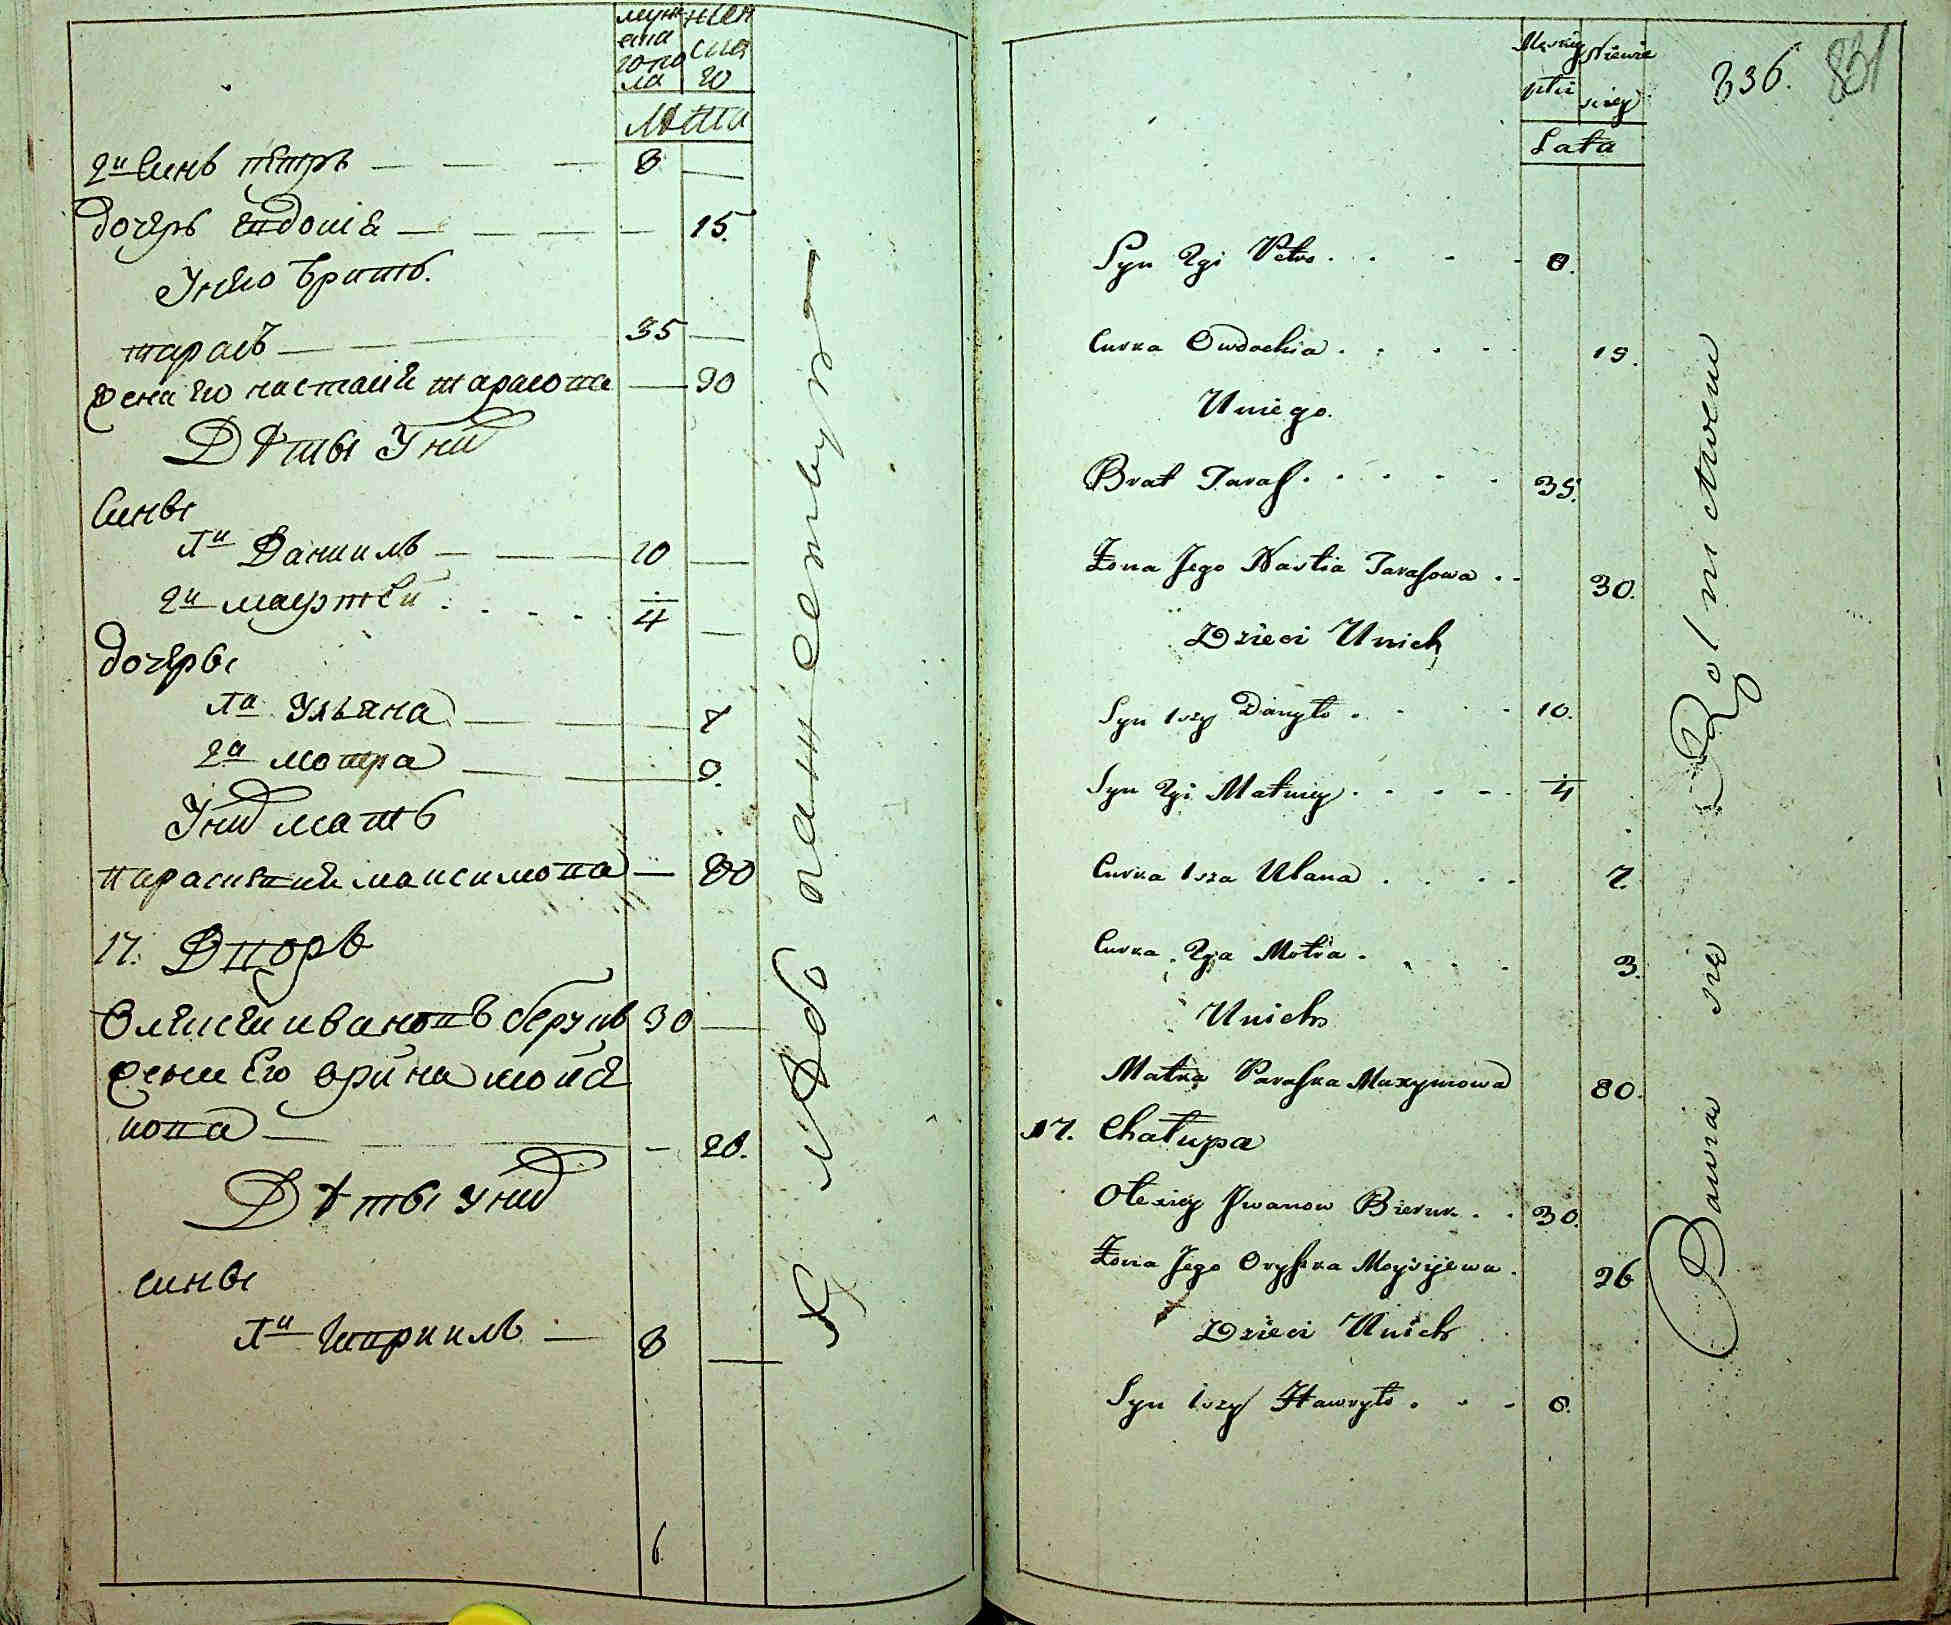 муж нжен
ска ска
го по го
ла
Лѣта
2й Синъ пѣтръ — — — 8 —
дочѣръ евдокіѣ — — — — 15.
Унѣго братъ.
тарасъ — — — 35 —
жена его настасіѣ тарасова — 30
Дѣты Уних
Сины
1й Даниилъ — — — 10 —
2й матвѣй . . . . 4 —
дочѣры
1а Ульяна — — — 7
2а мотра — — 3.
Уних мать
парасковіѣ максимова — 80
17. Дворъ
Олексѣй ивановъ берукъ 30 —
жена Его орина моисѣ
йова — — — 26.
Дѣты уних
сины
1й гаврилъ — 8 —
6
Хлѣбопашествуют
Męzkiey Niewie
płci sciey
Lata
336. 831
Syn 2gi Petro . . . . 8.
Curka Owdochia . . . . . 15.
Uniego.
Brat Taras . . . . . 35.
Żona Jego Nastia Tarasowa . . 30.
Dzieci Unich
Syn 1szy Danyło . . . . 10.
Syn 2gi Matwiey . . . . . 4
Curka 1sza Ulana . . . . 7.
Curka 2ga Motra . . . . 3.
Unich
Matka Paraska Maxymowa 80.
17. Chałupa
Olexiey Iwanow Bieruk . . 30.
Żona Jego Oryszka Moysijewa . 26
Dzieci Unich
Syn 1szy Hawryło . . . 8.
Bawia się Rolnictwem